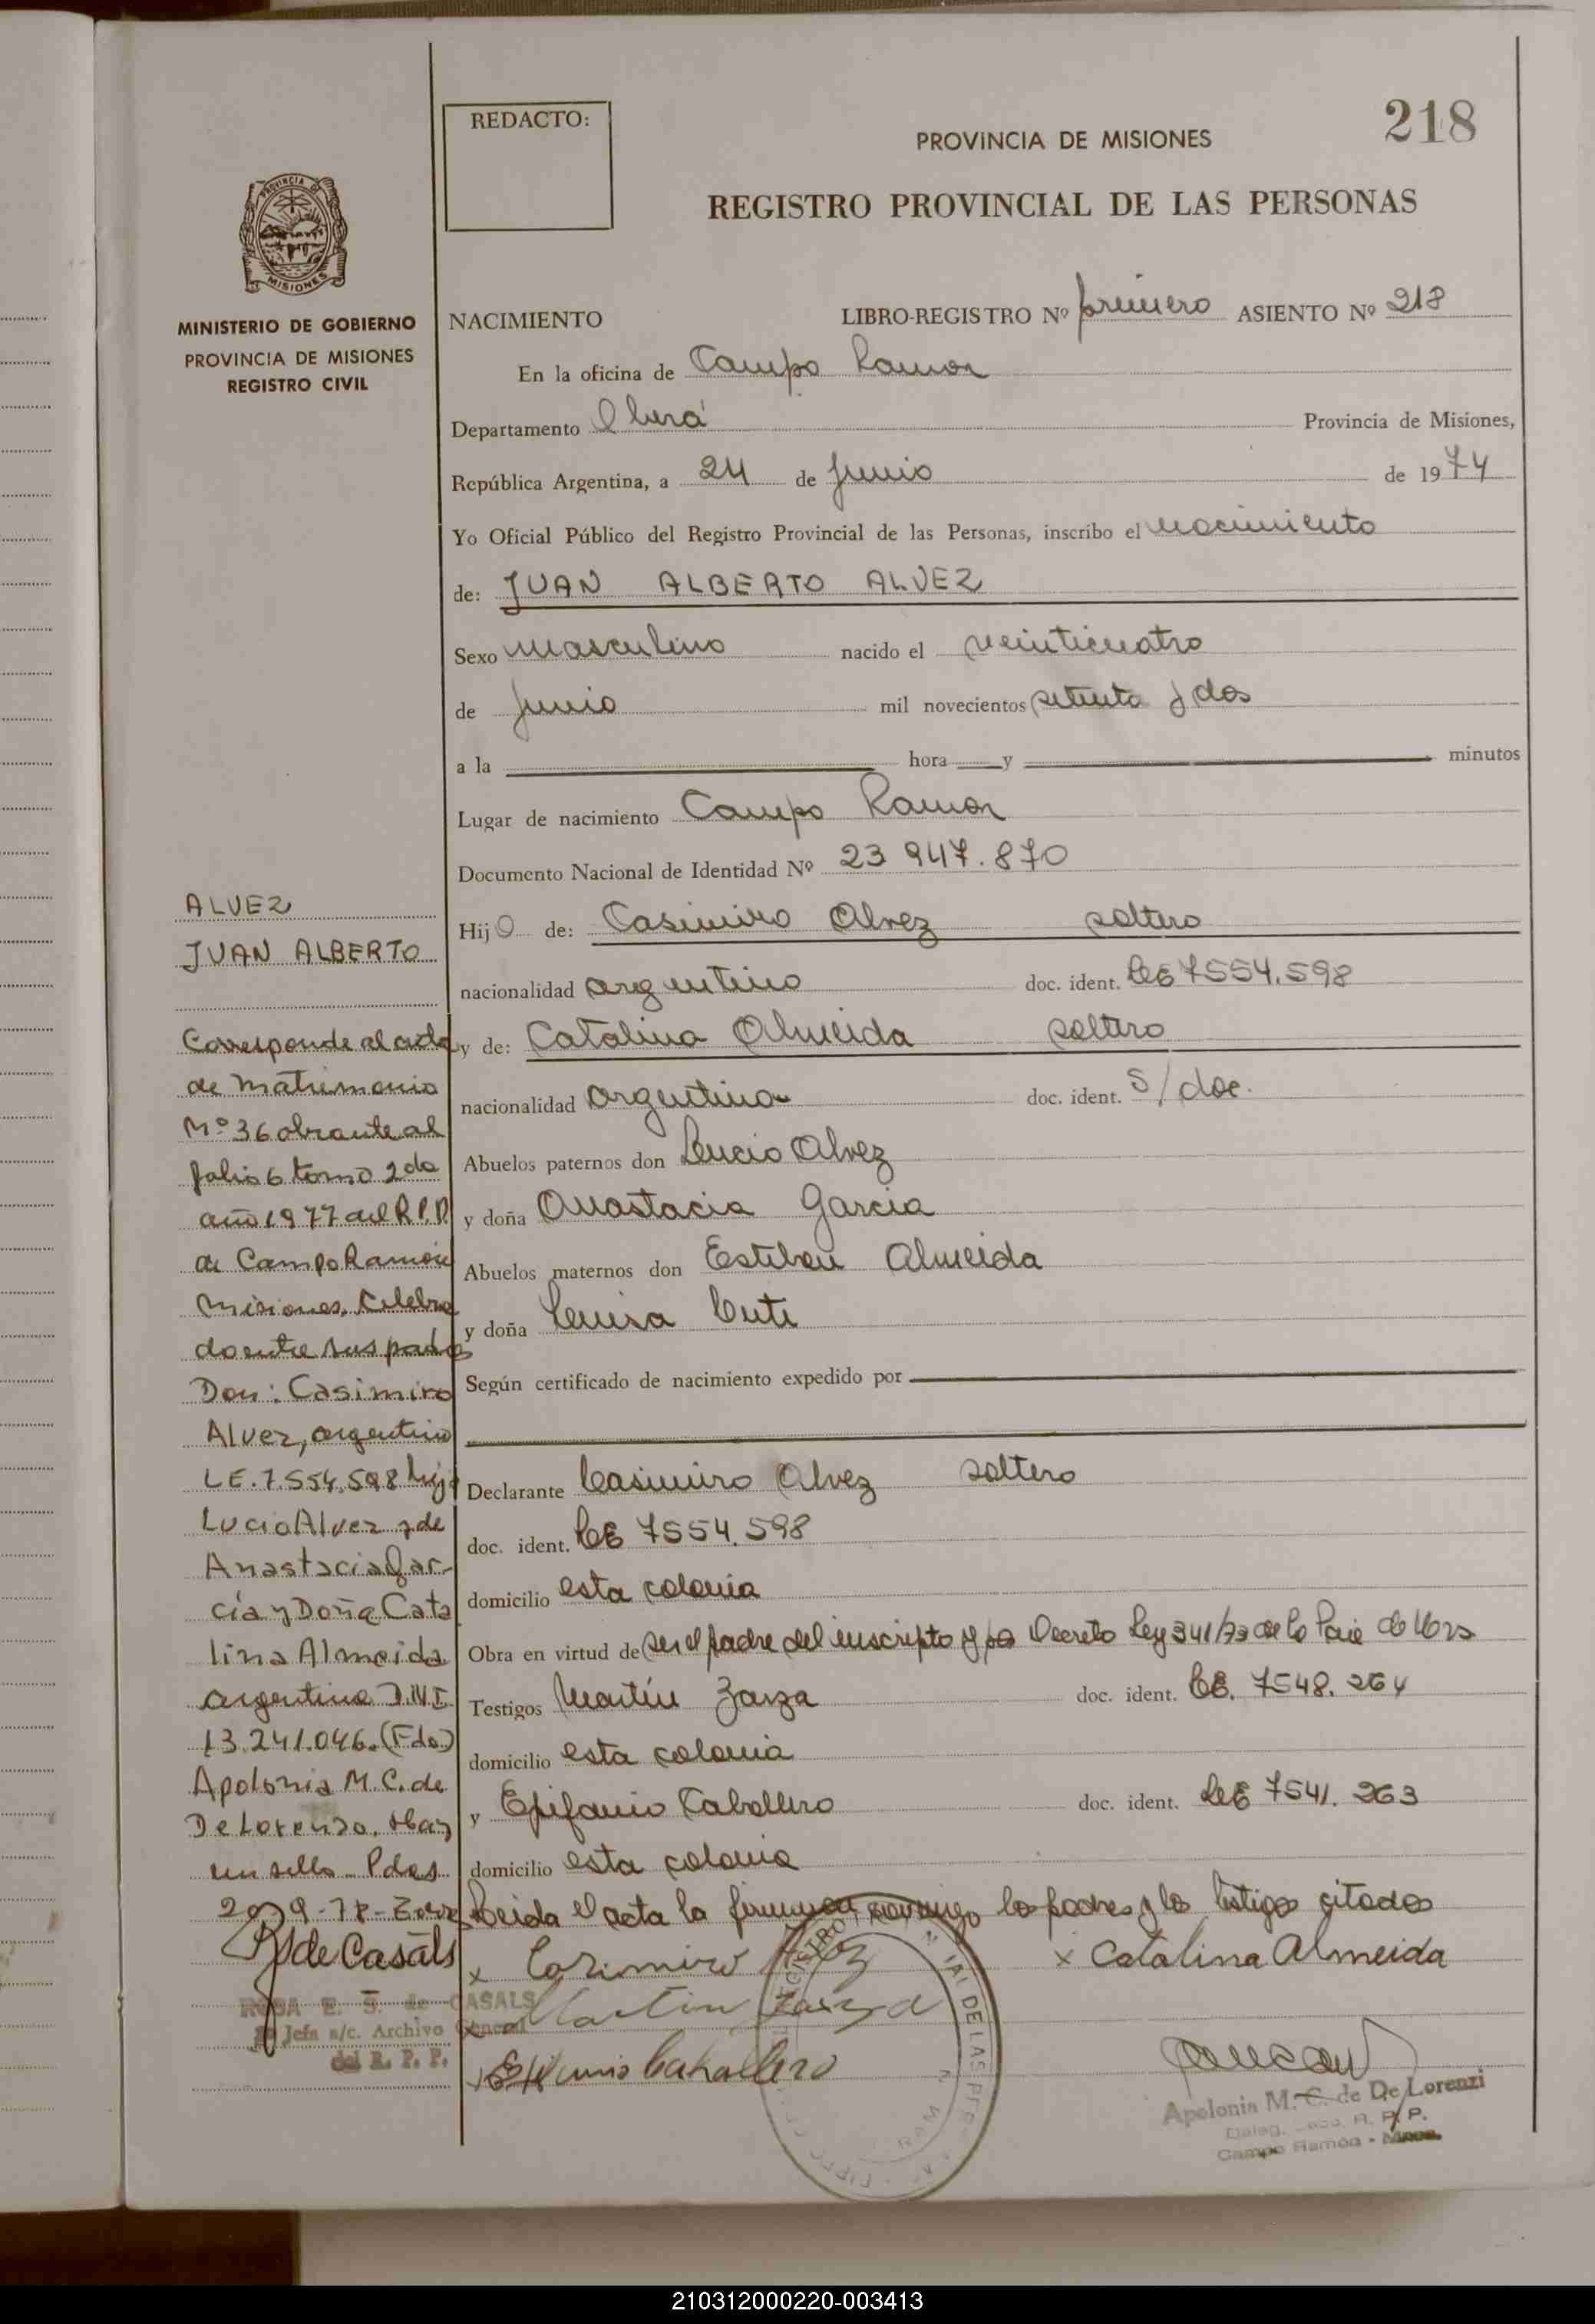 REDACTO:
218
PROVINCIA DE MISIONES
REGISTRO PROVINCIAL DE LAS PERSONAS
PROVINCIA DE
MISIONES
MINISTERIO DE GOBIERNO
PROVINCIA DE MISIONES
REGISTRO CIVIL
NACIMIENTO LIBRO-REGISTRO Nº primero ASIENTO Nº 218
En la oficina de Campo Ramon
Departamento Obera Provincia de Misiones,
República Argentina, a 24 de Junio de 1974
Yo Oficial Público del Registro Provincial de las Personas, inscribo el nacimiento
de: JUAN ALBERTO ALVEZ
Sexo masculino nacido el veinticuatro
de Junio mil novecientos setenta y dos
a la hora y minutos
Lugar de nacimiento Campo Ramon
Documento Nacional de Identidad Nº 23 947.870
Hijo de: Casimiro Alvez soltero
nacionalidad argentino doc. ident. LE 7554.598
y de: Catalina Almeida soltera
nacionalidad argentina doc. ident. S/doc.
Abuelos paternos don Lucio Alvez
y doña Anastacia Garcia
Abuelos maternos don Esteban Almeida
y doña Luisa
Según certificado de nacimiento expedido por
Declarante Casimiro Alvez soltero
doc. ident. LE 7554.598
domicilio esta colonia
Obra en virtud de ser el padre del inscripto y Decreto Ley 341/73 de la
Testigos Martín Zarza doc. ident. LE. 7548.264
domicilio esta colonia
y Epifanio Caballero doc. ident. LE 7541.263
domicilio esta colonia
Leida el acta la firman conmigo los padres y los testigos citados
x Casimiro Alvez x Catalina Almeida
x Martin Zarza
x Epifanio Caballero
Apolonia M. C. de De Lorenzi
Deleg. R. P. P.
Campo Ramón - Mnes.
ALVEZ
JUAN ALBERTO
Corresponde al acta
de matrimonio
Nº 36 obrante al
folio 6 tomo 2do
año 1977 del R.P.P.
de Campo Ramón
Misiones. Celebra
do entre sus padres
Don: Casimiro
Alvez, argentino
LE. 7.554.598 hijo
Lucio Alvez y de
Anastacia Gar-
cía y Doña Cata
lina Almeida
argentina D.N.I.
13.241.046. (Fdo.)
Apolonia M. C. de
De Lorenzo. Hay
un sello. Pdas
9-78
RS de Casals
ROSA E. S. de CASALS
Jefa a/c. Archivo General
del R. P. P.
210312000220-003413